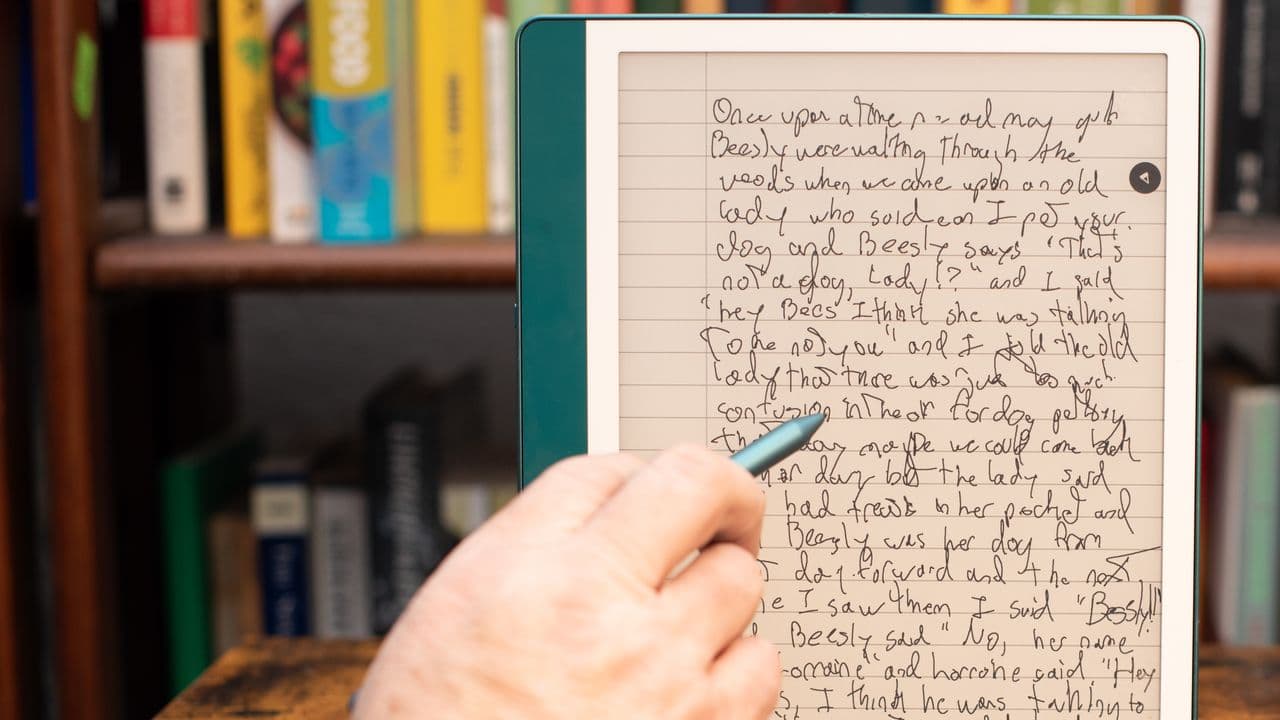 FOOD
Once upon a time and may
Beesly were walking through the
woods when we came upon an old
lady who said can I pet your
dog and Beesly says "That's
not a dog, Lady!?" and I said
"hey Bees I think she was talking
To me not you" and I told the old
lady that there was just too much
confusion in the air for dog petting
day maybe we could come back
day but the lady said
had treats in her pocket and
Beesly was her dog from
day forward and the next
I saw them I said "Beesly!!"
Beesly said "No, her name
Lorraine" and Lorraine said "Hey
I think he was talking to